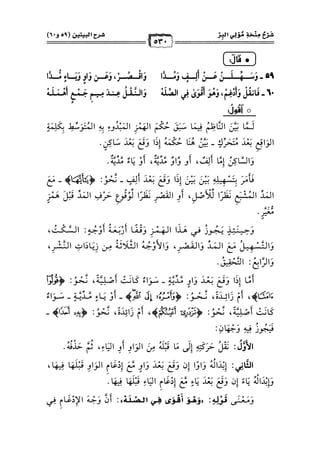 شرح منحة مولي البر
شرح البيتين (٥٩ و٦٠)
٥٣٠
قال
٥٩ ـ وَسَـهِّـلَـنْ عَـنْ أَلِـفٍ وَمُـدَّا وَاقْـصُـرْ، وَعَـن وَاوٍ وَيَـاءٍ مُـدَّا
٦٠ ـ فَانْقُلْ وَأَدْغِمْ، وَهْوَ أَقْوَى فِي الصِّلَهْ وَالنَّـقْـلُ عِـنـدَ مِـيـمِ جَـمْـعٍ أَهْـمَـلَـهْ
أقول
لَـمَّـا بَيَّنَ النَّاظِمُ فِيمَا سَبَقَ حُكْمَ الهَمْزِ المَبْدُوءِ بِهِ المُتَوَسِّطِ بِكَلِمَةٍ
الوَاقِعِ بَعْدَ مُتَحَرِّكٍ ـ بَيَّنَ هُنَا حُكْمَهُ إِذَا وَقَعَ بَعْدَ سَاكِنٍ.
وَالسَّاكِنُ إِمَّا أَلِفٌ، أَو وَاوٌ مَدِّيَّةٌ، أَوْ يَاءٌ مَدِّيَّةٌ.
فَأَمَرَ بِتَسْهِيلِهِ بَيْنَ بَيْنَ إِذَا وَقَعَ بَعْدَ أَلِفٍ ـ نَحْوُ: ﴿يَٰٓأَيُّهَا﴾ ـ مَعَ
المَدِّ المُشْبَعِ نَظَرًا لِلْأَصْلِ، أَوِ القَصْرِ نَظَرًا لِوُقُوعِ حَرْفِ المَدِّ قَبْلَ هَمْزٍ
مُغَيَّرٍ.
وَحِينَئِذٍ يَجُوزُ فِي هَذَا الهَـمْـزِ وَقْفًا أَرْبَعَةُ أَوْجُهٍ: السَّكْتُ،
وَالتَّسْهِيلُ مَعَ المَـدِّ وَالقَصْرِ، وَالأَوْجُهُ الثَّلَاثَةُ مِن زِيَادَاتِ النَّشْرِ،
وَالرَّابِعُ: التَّحْقِيقُ.
أَمَّا إِذَا وَقَعَ بَعْدَ وَاوٍ مَدِّيَّةٍ ـ سَوَاءٌ كَانَتْ أَصْلِيَّةً، نَحْوُ: ﴿قُولُوٓاْ
ءَامَنَّا﴾، أَمْ زَائِدَةً، نَحْوُ: ﴿وَأَمْرُهُۥٓ إِلَى ٱللَّهِ﴾ ـ أَوْ يَاءٍ مَدِّيَّةٍ ـ سَوَاءٌ
كَانَتْ أَصْلِيَّةً، نَحْوُ: ﴿تَزْدَرِيٓ أَعْيُنُكُمْ﴾، أَمْ زَائِدَةً، نَحْوُ: ﴿بِهِۦٓ أَحَدًا﴾ ـ
فَيَجُوزُ فِيهِ وَجْهَانِ:
الأَوَّلُ: نَقْلُ حَرَكَتِهِ إِلَى مَا قَبْلَهُ مِنَ الوَاوِ أَوِ اليَاءِ، ثُمَّ حَذْفُهُ.
الثَّانِي: إِبْدَالُهُ وَاوًا إِن وَقَعَ بَعْدَ وَاوٍ مَّعَ إِدْغَامِ الوَاوِ قَبْلَهَا فِيهَا،
وَإِبْدَالُهُ يَاءً إِن وَقَعَ بَعْدَ يَاءٍ مَّعَ إِدْغَامِ اليَاءِ قَبْلَهَا فِيهَا.
وَمَعْنَى قَوْلِهِ: «وَهْـوَ أَقْـوَى فِـي الـصِّـلَـهْ»: أَنَّ وَجْهَ الإِدْغَامِ فِي